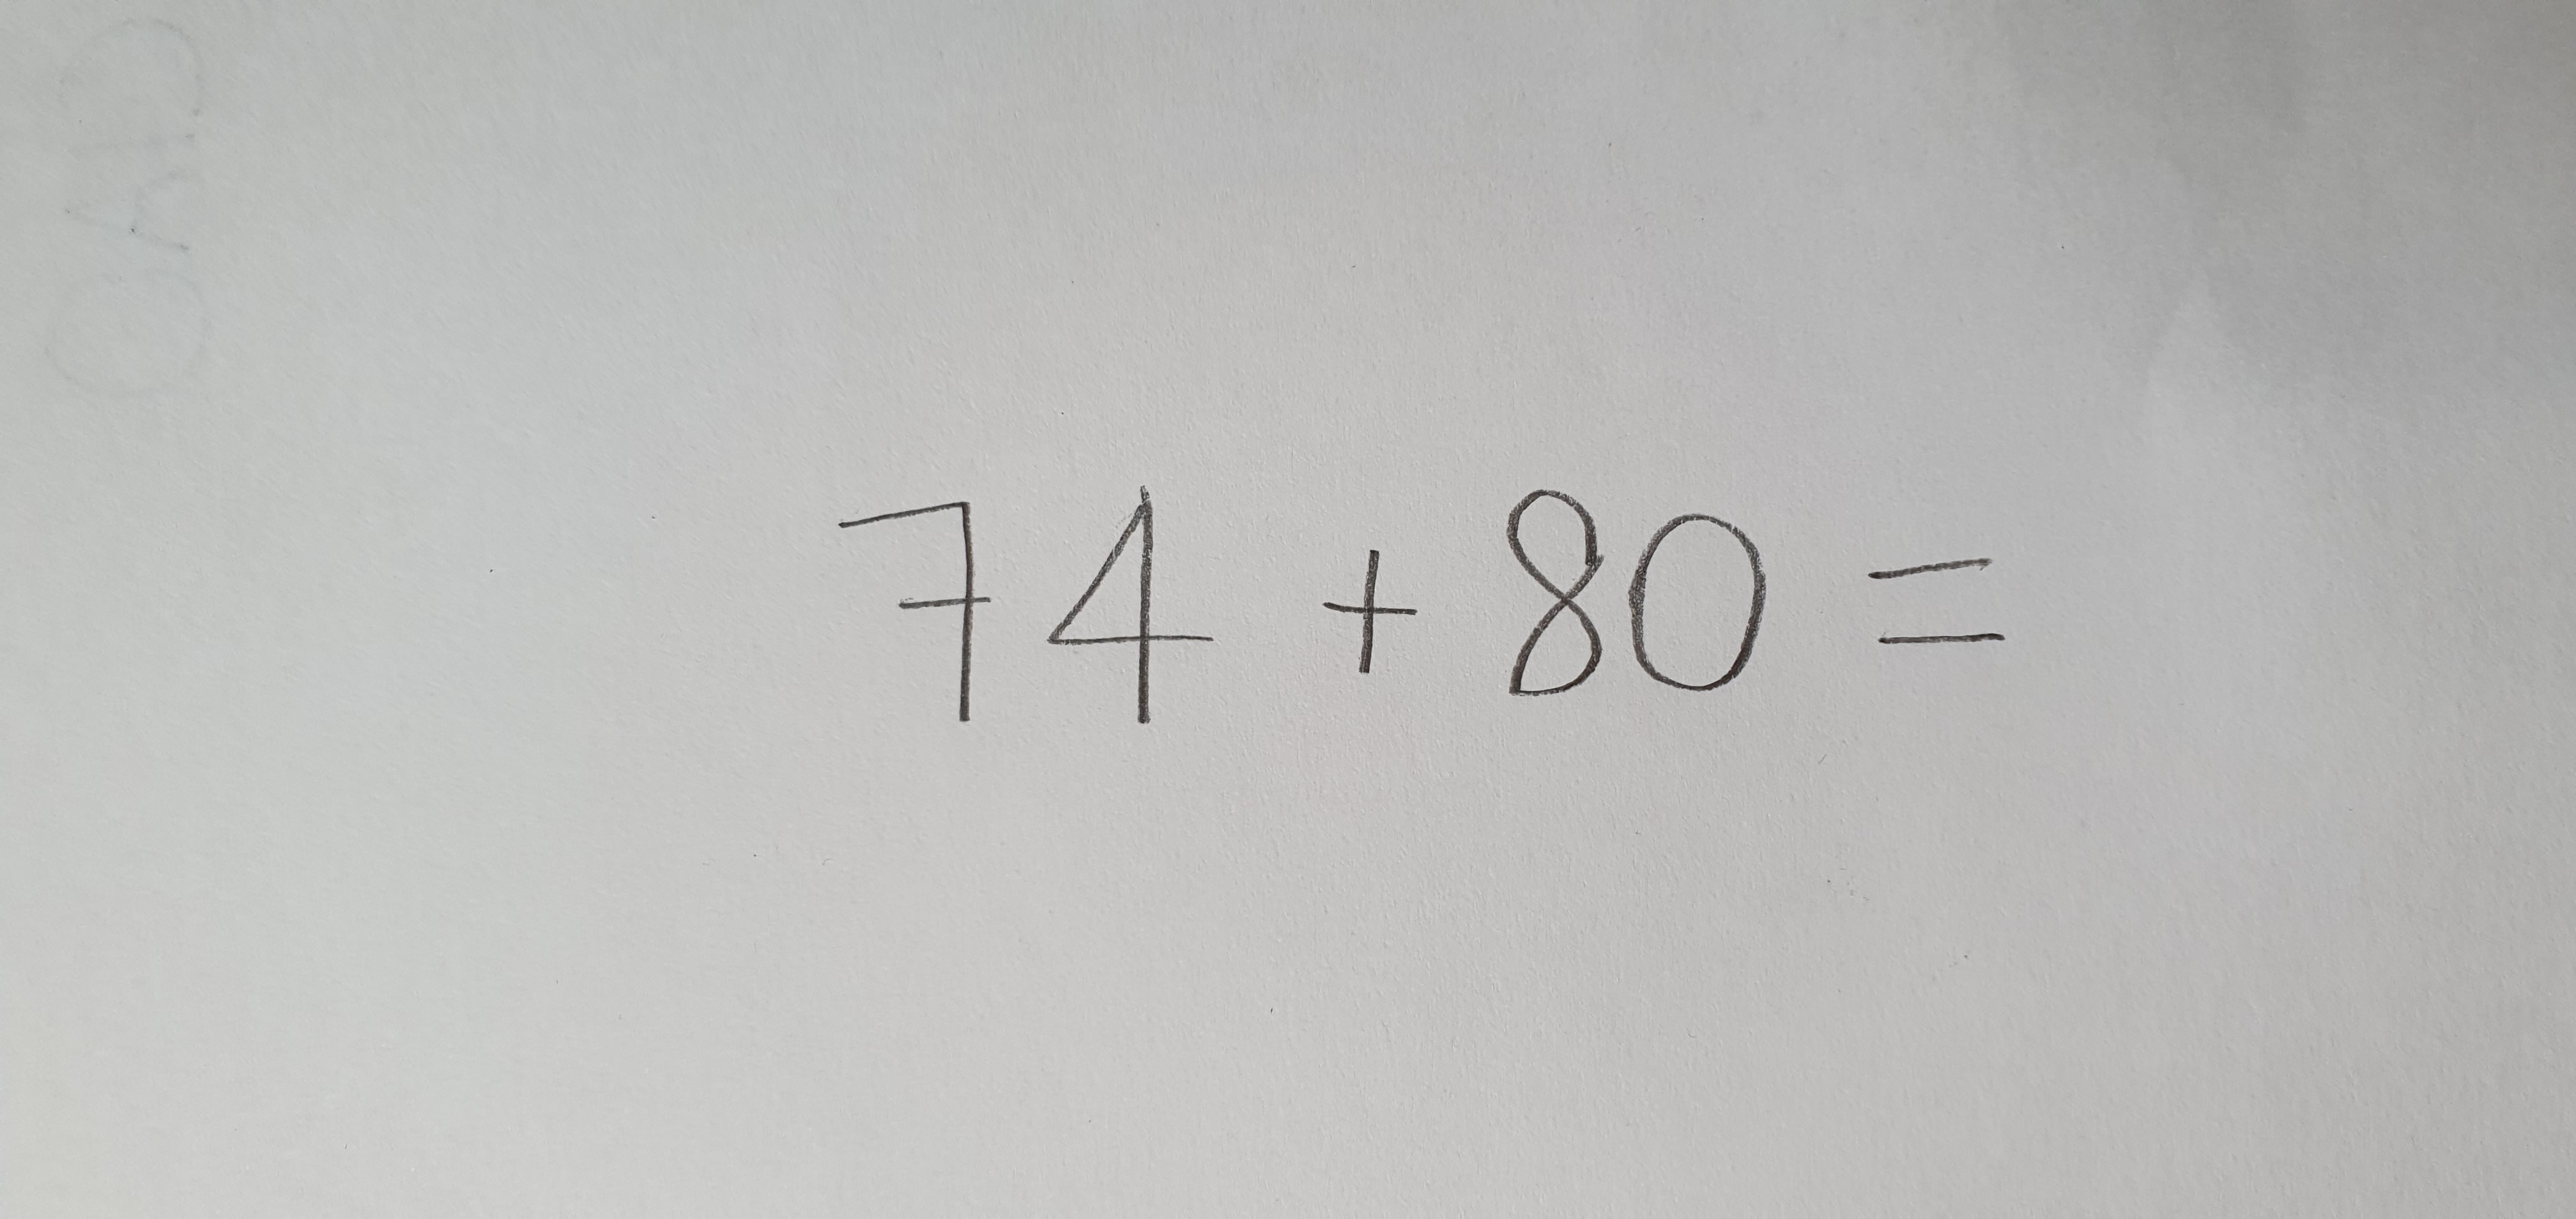 74 + 80 =